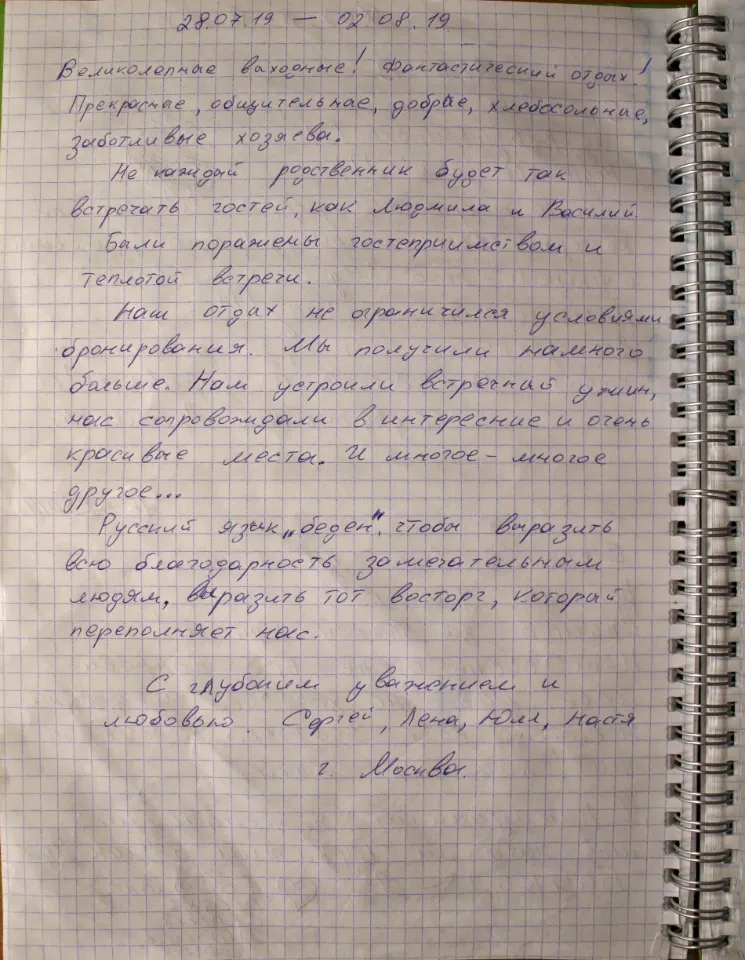 28.07.19 — 02.08.19
Великолепные выходные! Фантастический отдых!
Прекрасные, общительные, добрые, хлебосольные,
заботливые хозяева.
Не каждый родственник будет так
встречать гостей, как Людмила и Василий.
Были поражены гостеприимством и
теплотой встречи.
Наш отдых не ограничился условиями
бронирования. Мы получили намного
больше. Нам устроили встречный ужин,
нас сопровождали в интересные и очень
красивые места. И многое-многое
другое...
Русский язык „беден", чтобы выразить
всю благодарность замечательным
людям, выразить тот восторг, который
переполняет нас.
С глубоким уважением и
любовью. Сергей, Лена, Юля, Настя
г. Москва.